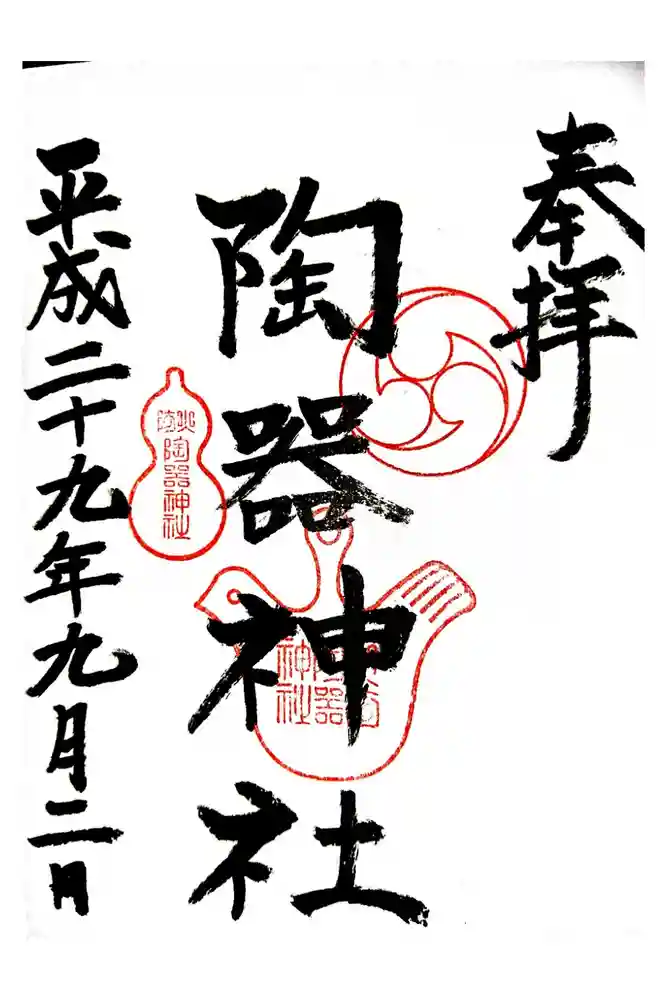 奉拝
陶器神社
陶器神社
平成二十九年九月二日